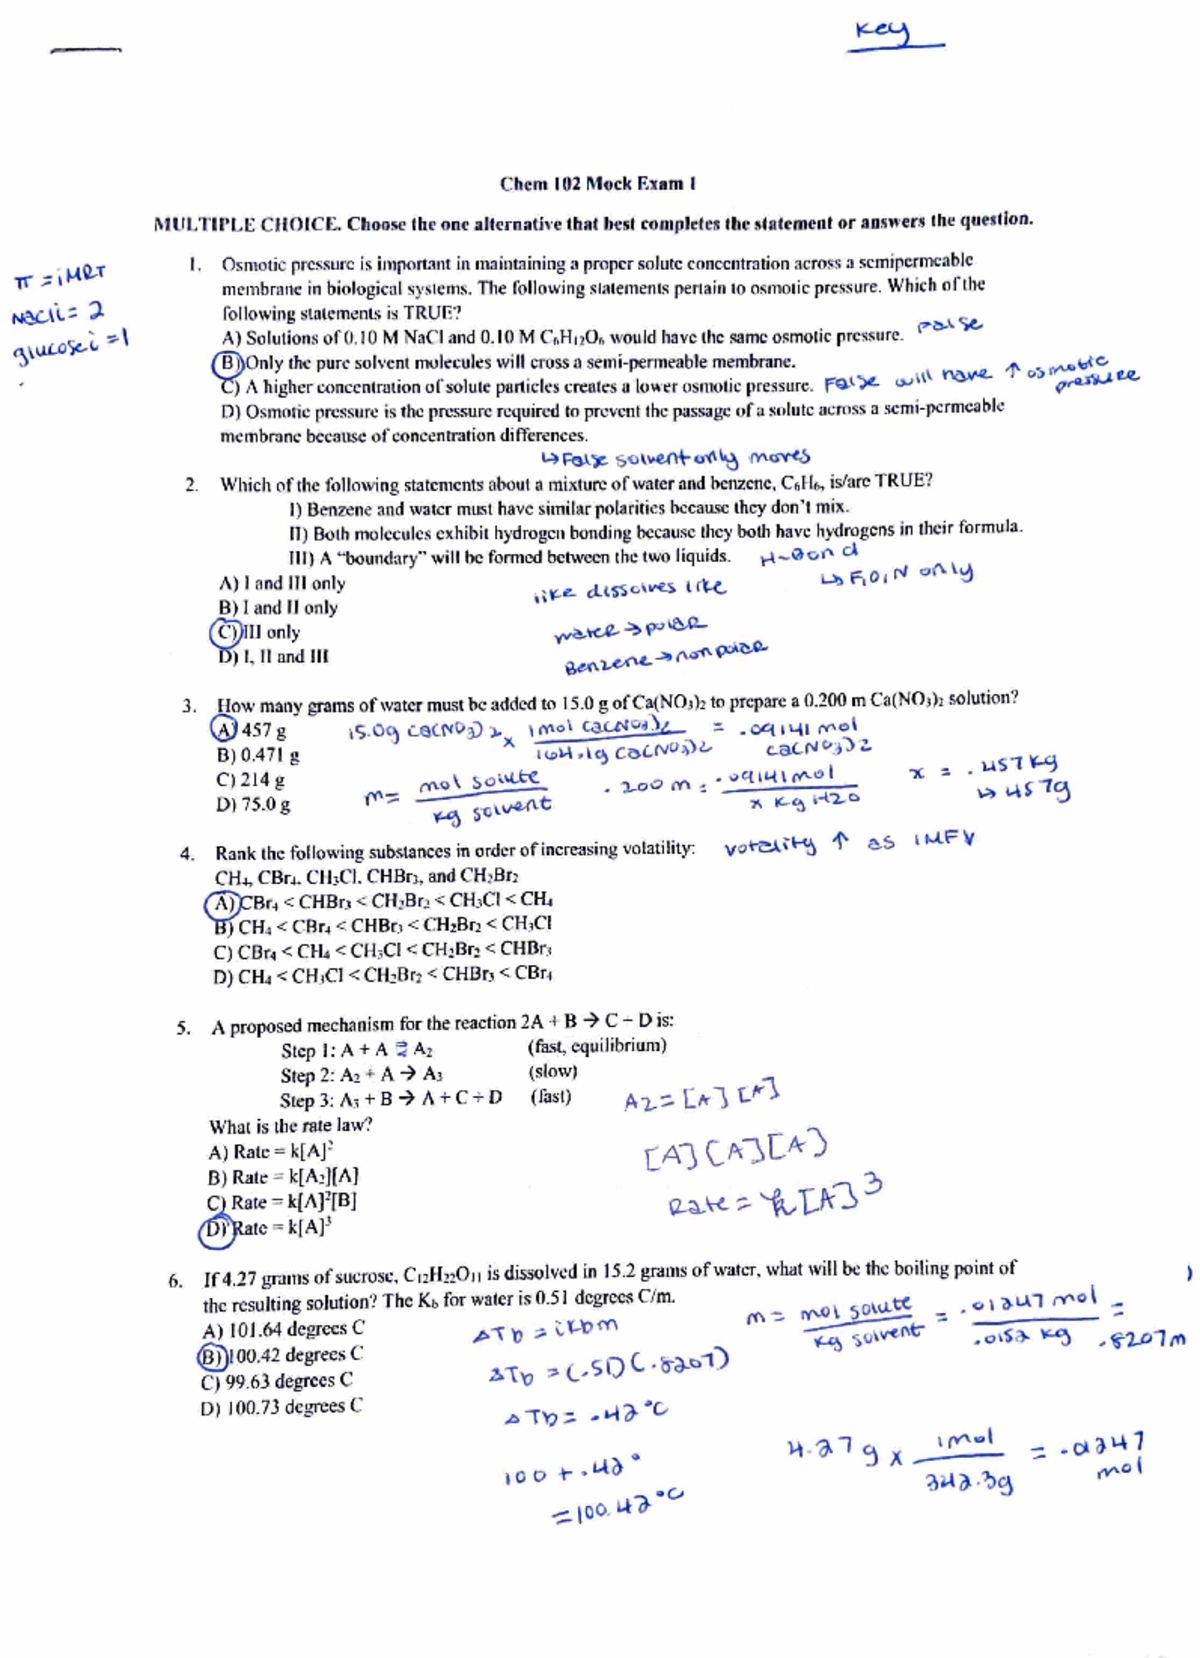 Key
Chem 102 Mock Exam 1
MULTIPLE CHOICE. Choose the one alternative that best completes the statement or answers the question.
π = iMRT
NaCl i = 2
glucose i = 1
1. Osmotic pressure is important in maintaining a proper solute concentration across a semipermeable
membrane in biological systems. The following statements pertain to osmotic pressure. Which of the
following statements is TRUE?
A) Solutions of 0.10 M NaCl and 0.10 M C₆H₁₂O₆ would have the same osmotic pressure. False
B) Only the pure solvent molecules will cross a semi-permeable membrane.
C) A higher concentration of solute particles creates a lower osmotic pressure. False will have ↑ osmotic pressure
D) Osmotic pressure is the pressure required to prevent the passage of a solute across a semi-permeable
membrane because of concentration differences.
↳ False solvent only moves
2. Which of the following statements about a mixture of water and benzene, C₆H₆, is/are TRUE?
I) Benzene and water must have similar polarities because they don't mix.
II) Both molecules exhibit hydrogen bonding because they both have hydrogens in their formula.
III) A "boundary" will be formed between the two liquids. H-Bond
↳ F, O, N only
A) I and III only
like dissolves like
B) I and II only
C) III only
water → polar
D) I, II and III
Benzene → nonpolar
3. How many grams of water must be added to 15.0 g of Ca(NO₃)₂ to prepare a 0.200 m Ca(NO₃)₂ solution?
A) 457 g
15.0g Ca(NO₃)₂ x 1 mol Ca(NO₃)₂ / 164.1g Ca(NO₃)₂ = .09141 mol Ca(NO₃)₂
B) 0.471 g
C) 214 g
D) 75.0 g
m = mol solute / kg solvent
.200 m = .09141 mol / x kg H₂O
x = .457 kg
↳ 457g
4. Rank the following substances in order of increasing volatility: votality ↑ as IMF ↓
CH₄, CBr₄, CH₃Cl, CHBr₃, and CH₂Br₂
A) CBr₄ < CHBr₃ < CH₂Br₂ < CH₃Cl < CH₄
B) CH₄ < CBr₄ < CHBr₃ < CH₂Br₂ < CH₃Cl
C) CBr₄ < CH₄ < CH₃Cl < CH₂Br₂ < CHBr₃
D) CH₄ < CH₃Cl < CH₂Br₂ < CHBr₃ < CBr₄
5. A proposed mechanism for the reaction 2A + B → C + D is:
Step 1: A + A ⇄ A₂ (fast, equilibrium)
Step 2: A₂ + A → A₃ (slow)
Step 3: A₃ + B → A + C + D (fast)
A2 = [A] [A]
What is the rate law?
A) Rate = k[A]²
[A] [A] [A]
B) Rate = k[A₂][A]
C) Rate = k[A]²[B]
Rate = k [A]³
D) Rate = k[A]³
6. If 4.27 grams of sucrose, C₁₂H₂₂O₁₁ is dissolved in 15.2 grams of water, what will be the boiling point of
the resulting solution? The K_b for water is 0.51 degrees C/m.
A) 101.64 degrees C
B) 100.42 degrees C
C) 99.63 degrees C
D) 100.73 degrees C
ΔTb = ikbm
m = mol solute / kg solvent = .01247 mol / .0152 kg = .8207 m
ΔTb = (.51)(.8207)
ΔTb = .42°C
4.27 g x 1 mol / 342.3g = .01247 mol
100 + .42°
= 100.42°C